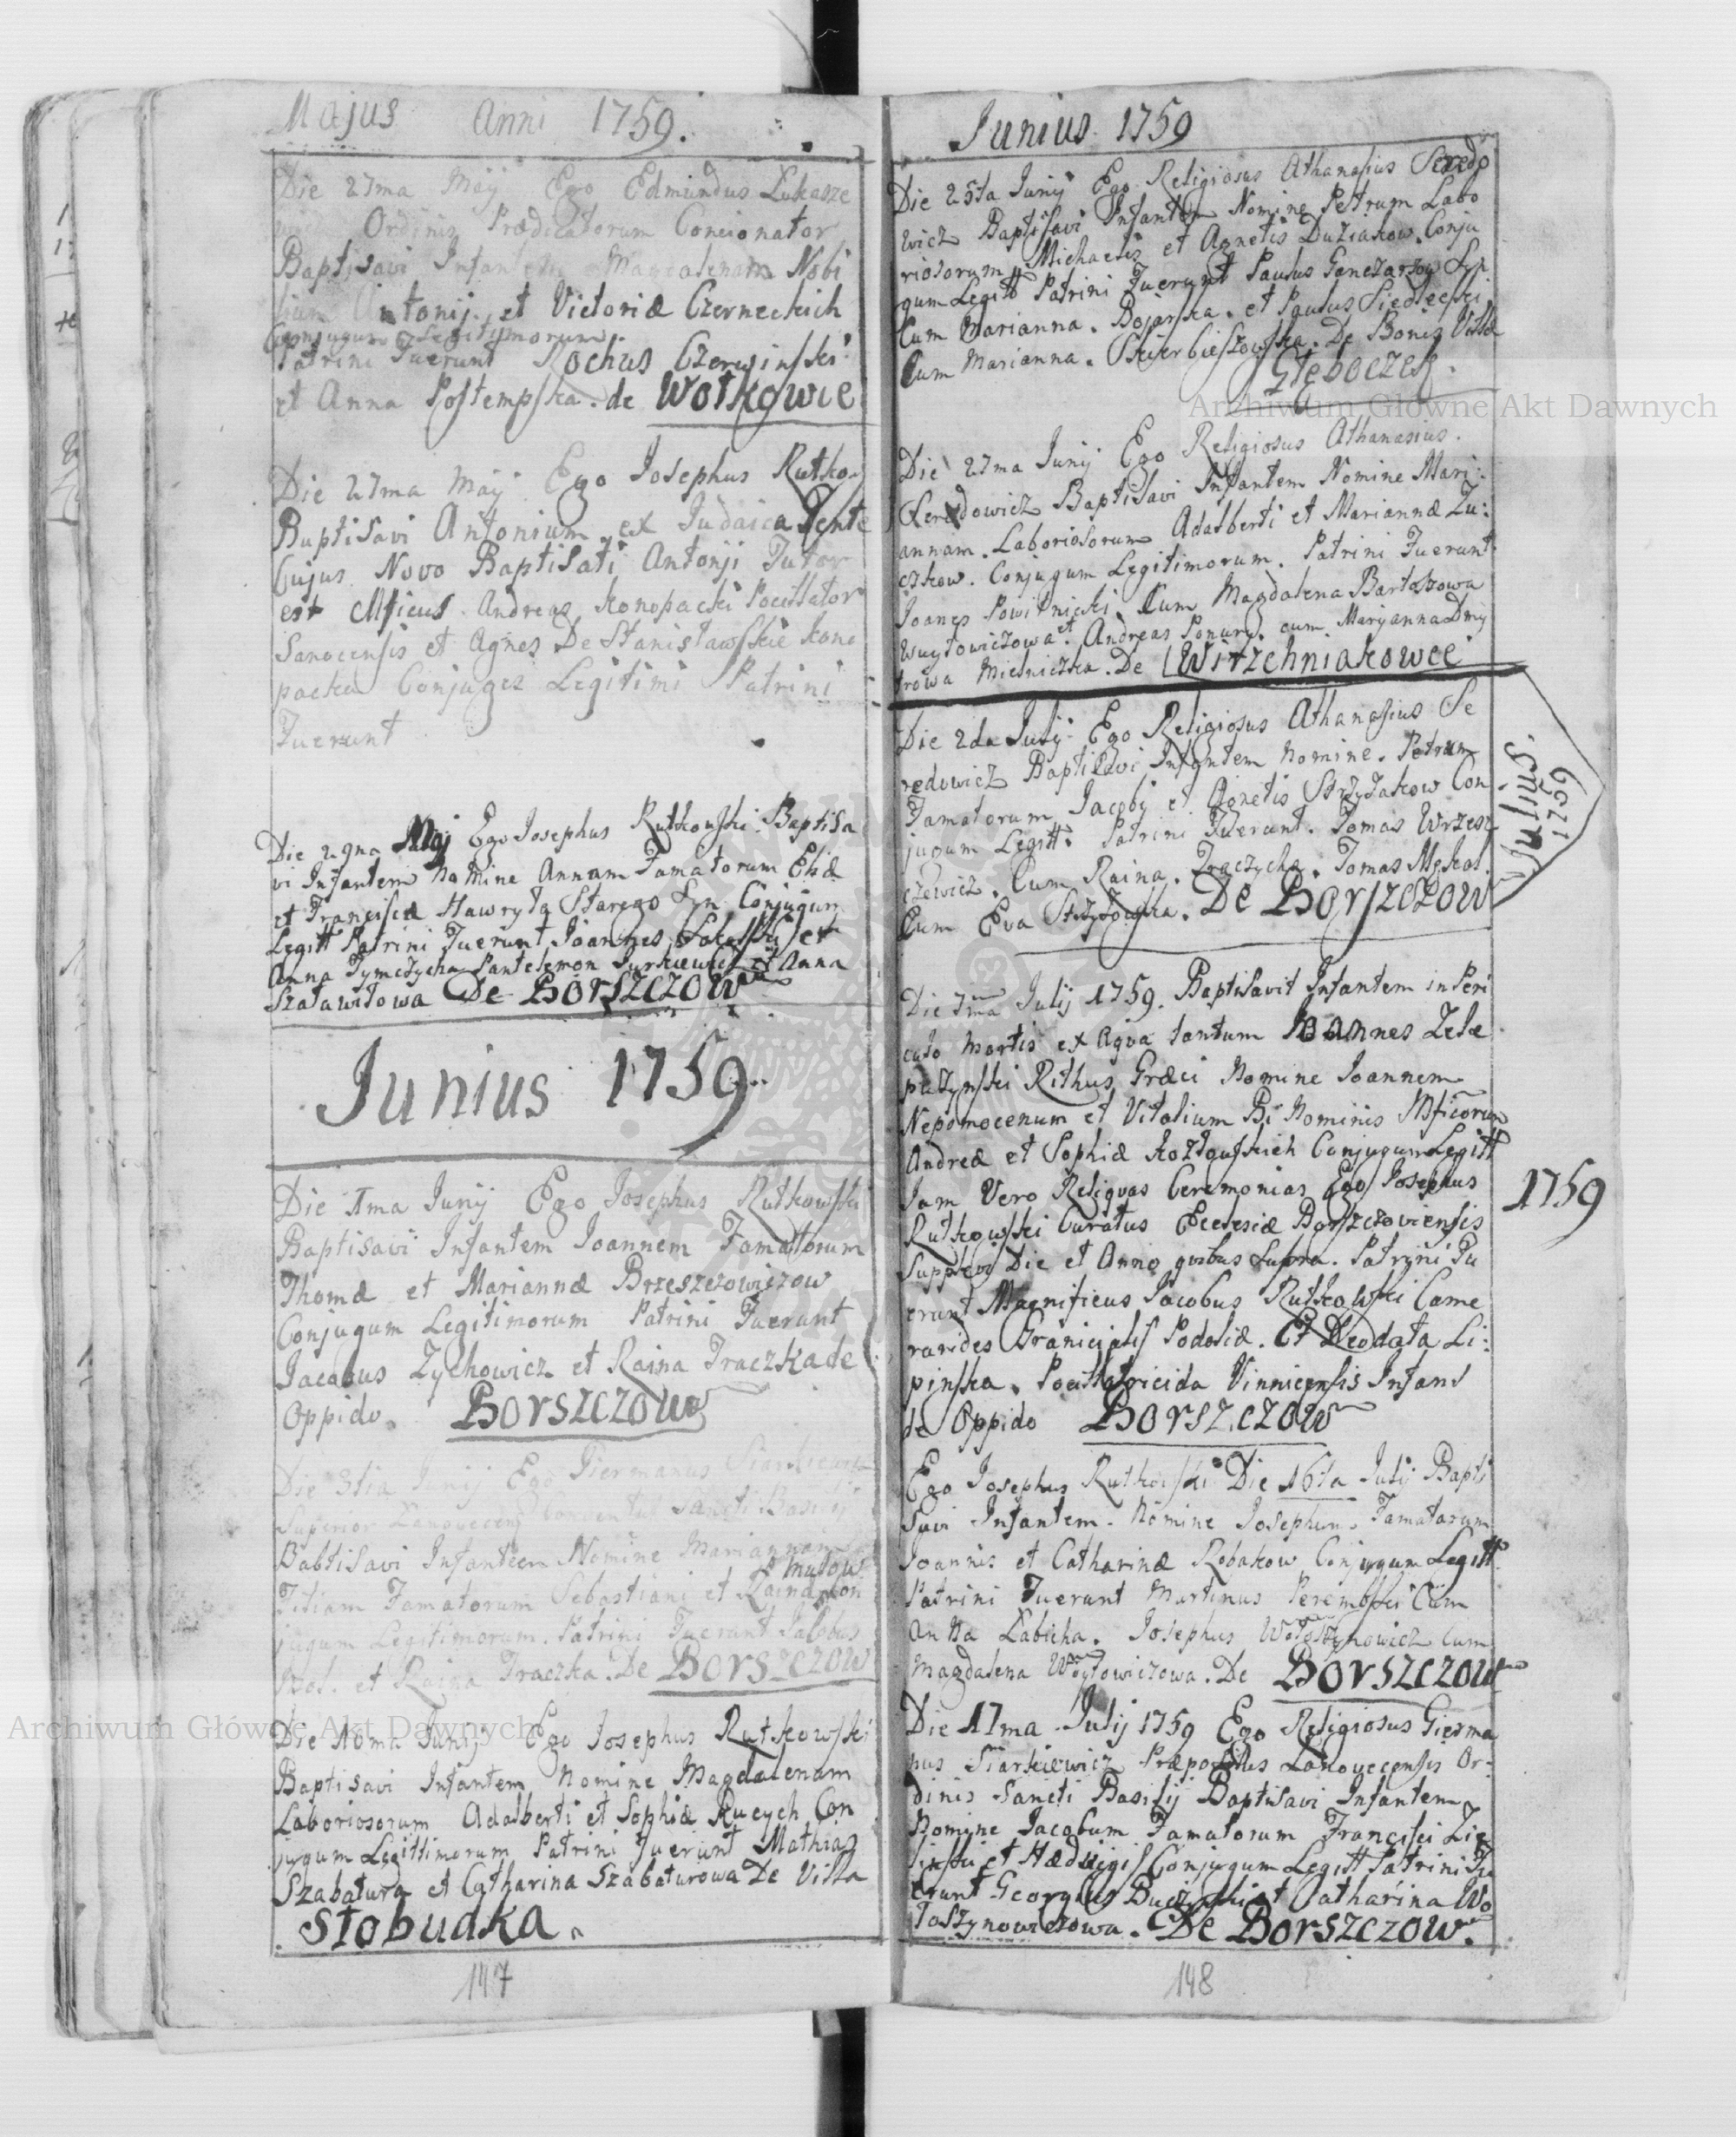 Majus Anni 1759.
Die 27ma Maij Ego Edmundus Lukasze
wicz Ordinis Prædicatorum Concionator
Baptisavi Infantem Magdalenam Nobi
lium Antonij et Victoriæ Czerneckich
Conjugum Legitymorum.
Patrini Fuerunt Rochus Czerwinski
et Anna Postempska. de Wołkowce
Die 27ma Maij Ego Josephus Rutko
Baptisavi Antonium ex Judaica Gente
Cujus Novo Baptisati Antonji Tutor
est Mficus Andreas Konopacki Pocillator
Sanocensis et Agnes De Stanisławskie Kono
packa Conjuges Legitimi Patrini
Fuerunt
Die 29na Maj Ego Josephus Rutkowski Baptisa
vi Infantem Nomine Annam Famatorum Eliæ
et Franciscæ Hawryła Starego Syn Conjugum
Legitt Patrini Fuerunt Joannes Sokalski et
Anna Tymczycha Pantelemon Jurkiewicz et Anna
Szaławiłowa De Borszczow
Junius 1759
Die 1ma Junij Ego Josephus Rutkowski
Baptisavi Infantem Joannem Famattorum
Thomæ et Mariannæ Brzeszczowiczow
Conjugum Legitimorum Patrini Fuerunt
Jacobus Zychowicz et Raina Traczka de
Oppido. Borszczow
Die 3tia Junij Ego Giermanus Siarkiewicz
Superior Lanovecens Conventus Sancti Basilij
Babtisavi Infantem Nomine Mariannam
Titiam Famatorum Sebastiani et Rainæ Con
jugum Legitimorum. Patrini Fuerunt Jacobus
et Raina Traczka. De Borszczow
Die Nona Junij Ego Josephus Rutkowski
Baptisavi Infantem Nomine Magdalenam
Laboriosorum Adalberti et Sophiæ Kucych Con
jugum Legittimorum Patrini Fuerunt Mathias
Szabatura et Catharina Szabaturowa De Villa
Słobudka.
147
Junius 1759
Die 25ta Junij Ego Religiosus Athanasius Seredo
wicz Baptisavi Infantem Nomine Petrum Labo
riosorum Michaelis et Agnetis Duziakow Conju
gum Legitt Patrini Fuerunt Paulus Ganczarzow Syn
Cum Marianna. Bojarska. et Paulus Siedlecki
Cum Marianna. Skierbieszowska. De Bonis Villæ
Głęboczek.
Die 27ma Junij Ego Religiosus Athanasius.
Seredowicz Baptisavi Infantem Nomine Mari:
annam. Laboriosorum Adalberti et Mariannæ Zu:
czkow. Conjugum Legitimorum. Patrini Fuerunt
Joanes Powitnicki. Cum Magdalena Bartoszowa
Wuytowiczowa et Andreas Ponury. cum Maryanna Dmy
trowa Mielniczka. De Wirzchniakowce
Die 2da Julij Ego Religiosus Athanasius Se
redowicz Baptisavi Infantem Nomine. Petrum
Famatorum Jacobi et Agnetis Strzyżakow Con
jugum Legitt: Patrini Fuerunt. Tomas Wrzesz
czewicz. Cum Raina. Traczycha. Tomas Myskal
Cum Eva Strzyżowska. De Borszczow
Julius.
1759
Die 7ma Julij 1759. Baptisavit Infantem in Peri
culo Mortis ex Aqva tantum Joannes Zele
puzynski Rithus Græci Nomine Joannem
Nepomocenum et Vitalium Bi Nominis Mficorum
Andreæ et Sophiæ Kozłowskich Conjugum Legitt
Jam Vero Reliqvas Ceremonias Ego Josephus
Rutkowski Curatus Ecclesiæ Borszczoviensis
Supplevi Die et Anno qvibus Supra. Patrini Fu
erunt Magnificus Jacobus Rutkowski Came
rarides Granicialis Podoliæ. Et Deodata Li:
pinska. Pocillatricida Vinnicensis Infans
de Oppido Borszczow
1759
Ego Josephus Rutkowski Die 16ta Julij Bapti
savi Infantem. Nomine Josephum. Famatarum
Joannis et Catharinæ Robakow Conjugum Legitt
Patrini Fuerunt Martinus Perembski Cum
Anna Łabicha. Josephus Wołoszynowicz Cum
Magdalena Woytowiczowa. De Borszczow
Die 17ma Julij 1759 Ego Religiosus Gierma
nus Siarkiewicz Præpositus Lanovecensis Or-
dinis Sancti Basilij Baptisavi Infantem
Nomine Jacobum Famatorum Francisci Zie
linski et Hædvigis Conjugum Legitt Patrini Fu
erunt Georgius Buczynski et Catharina Wo
łoszynowiczowa. De Borszczow.
148
Archiwum Główne Akt Dawnych
Archiwum Główne Akt Dawnych